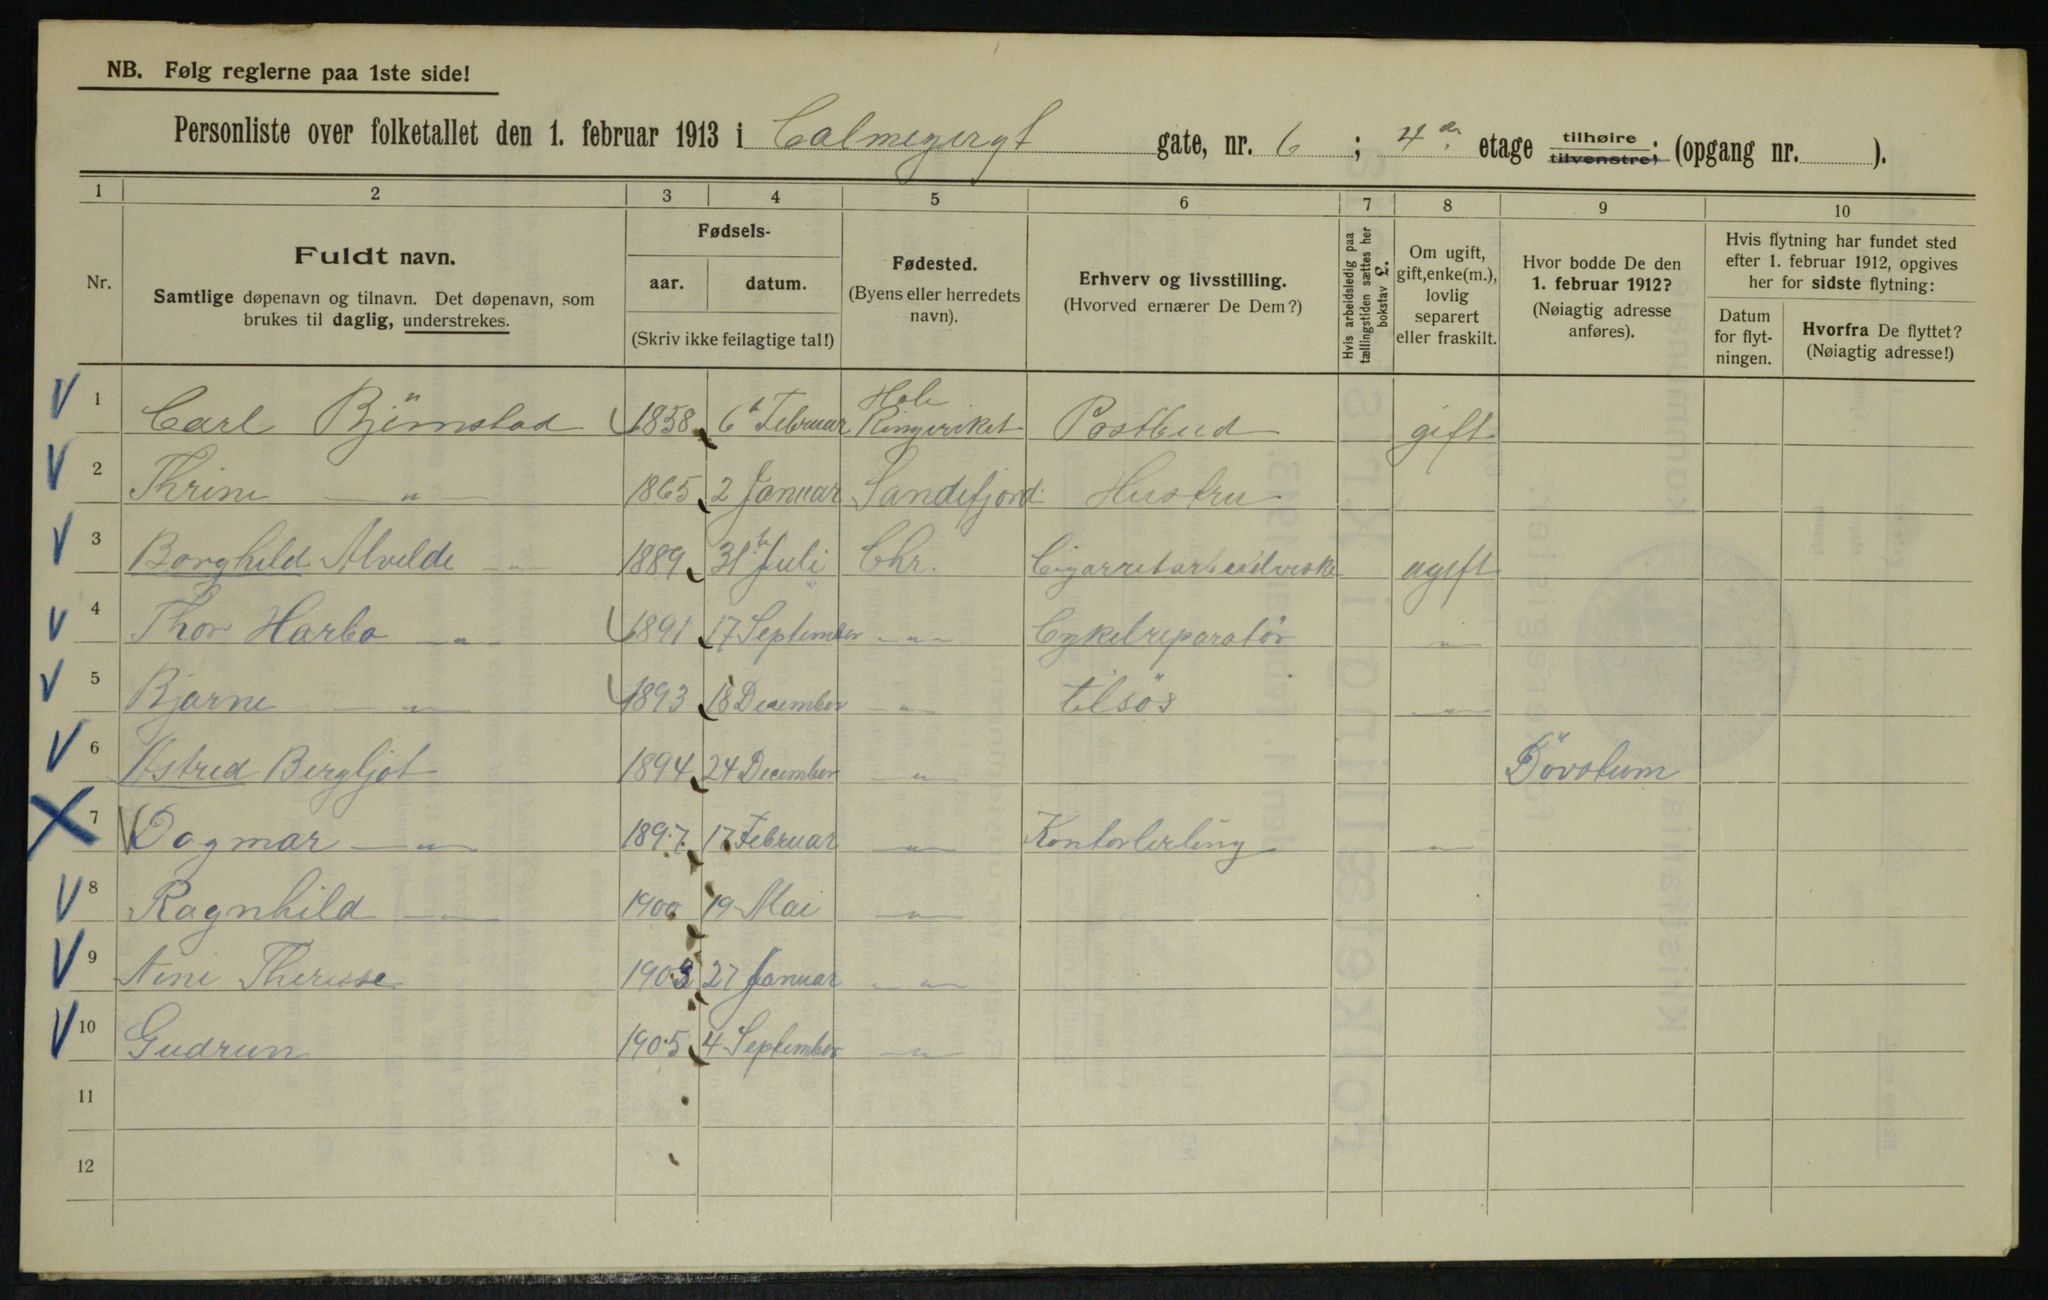 NB. Følg reglerne paa 1ste side!
Personliste over folketallet den 1. februar 1913 i Calmeyergt gate, nr. 6 ; 4de etage tilhøire. tilvenstre; (opgang nr. ).
1 2 3 4 5 6 7 8 9 10
Nr.
Fuldt navn.
Samtlige døpenavn og tilnavn. Det døpenavn, som
brukes til daglig, understrekes.
Fødsels-
aar. datum.
(Skriv ikke feilagtige tal!)
Fødested.
(Byens eller herredets
navn).
Erhverv og livsstilling.
(Hvorved ernærer De Dem?)
Hvis arbeidsledig paa
tællingstiden sættes her
bokstav L.
Om ugift,
gift, enke(m.),
lovlig
separert
eller fraskilt.
Hvor bodde De den
1. februar 1912?
(Nøiagtig adresse
anføres).
Hvis flytning har fundet sted
efter 1. februar 1912, opgives
her for sidste flytning:
Datum
for flyt-
ningen.
Hvorfra De flyttet?
(Nøiagtig adresse!)
1 Carl Björnstad 1858 6te Februar Hole Ringeriket Postbud gift
2 Thrine — " — 1865 2 Januar Sandefjord. Hustru
3 Borghild Alvilde — " — 1889 31te Juli Chr. Cigarretarbeiderske ugift
4 Thor Harbo — " — 1891 17 September — " — Cykelreparatör — " —
5 Bjarne — " — 1893 18 December — " — tilsös — " —
6 Astrid Bergljot 1894 24 December — " — Dövstum
7 Dagmar — " — 1897 17 Februar — " — Kontorlerling — " —
8 Ragnhild — " — 1900 19 Mai — " —
9 Nini Therese 1903 27 Januar — " —
10 Gudrun 1905 4 September — " —
11
12